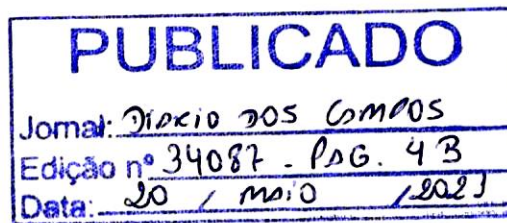 PUBLICADO
Jornal: DIARIO DOS CAMPOS
Edição nº 34087 - PAG. 4 B
Data: 20 / MAIO / 2023